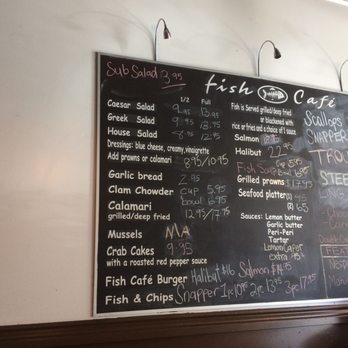 Sub Salad 3.95
fish Café
1/2 Full
Caesar Salad
Greek Salad
House Salad 8.95 12.95
Dressings: blue cheese, creamy, vinaigrette
Add prawns or calamari 8.95/10.95
Garlic bread 2.95
Clam Chowder cup 5.95
bowl 6.95
Calamari
grilled/deep fried 12.95/17.95
Mussels
Crab Cakes 9.95
with a roasted red pepper sauce
Fish Café Burger Halibut $16 Salmon $14.95
Fish & Chips Snapper 1pc 10.95 2pc 13.95 3pc 17.95
Fish is Served grilled/deep fried
or blackened with
rice or fries and a choice of 1 sauce
Salmon
Halibut 22.95
Fish Soup cup 5.95
bowl
Grilled prawns $17.95
Seafood platter
Sauces: Lemon butter
Garlic butter
Peri-Peri
Tartar
Lemon Caper
extra .95
Scallops
SNAPPER